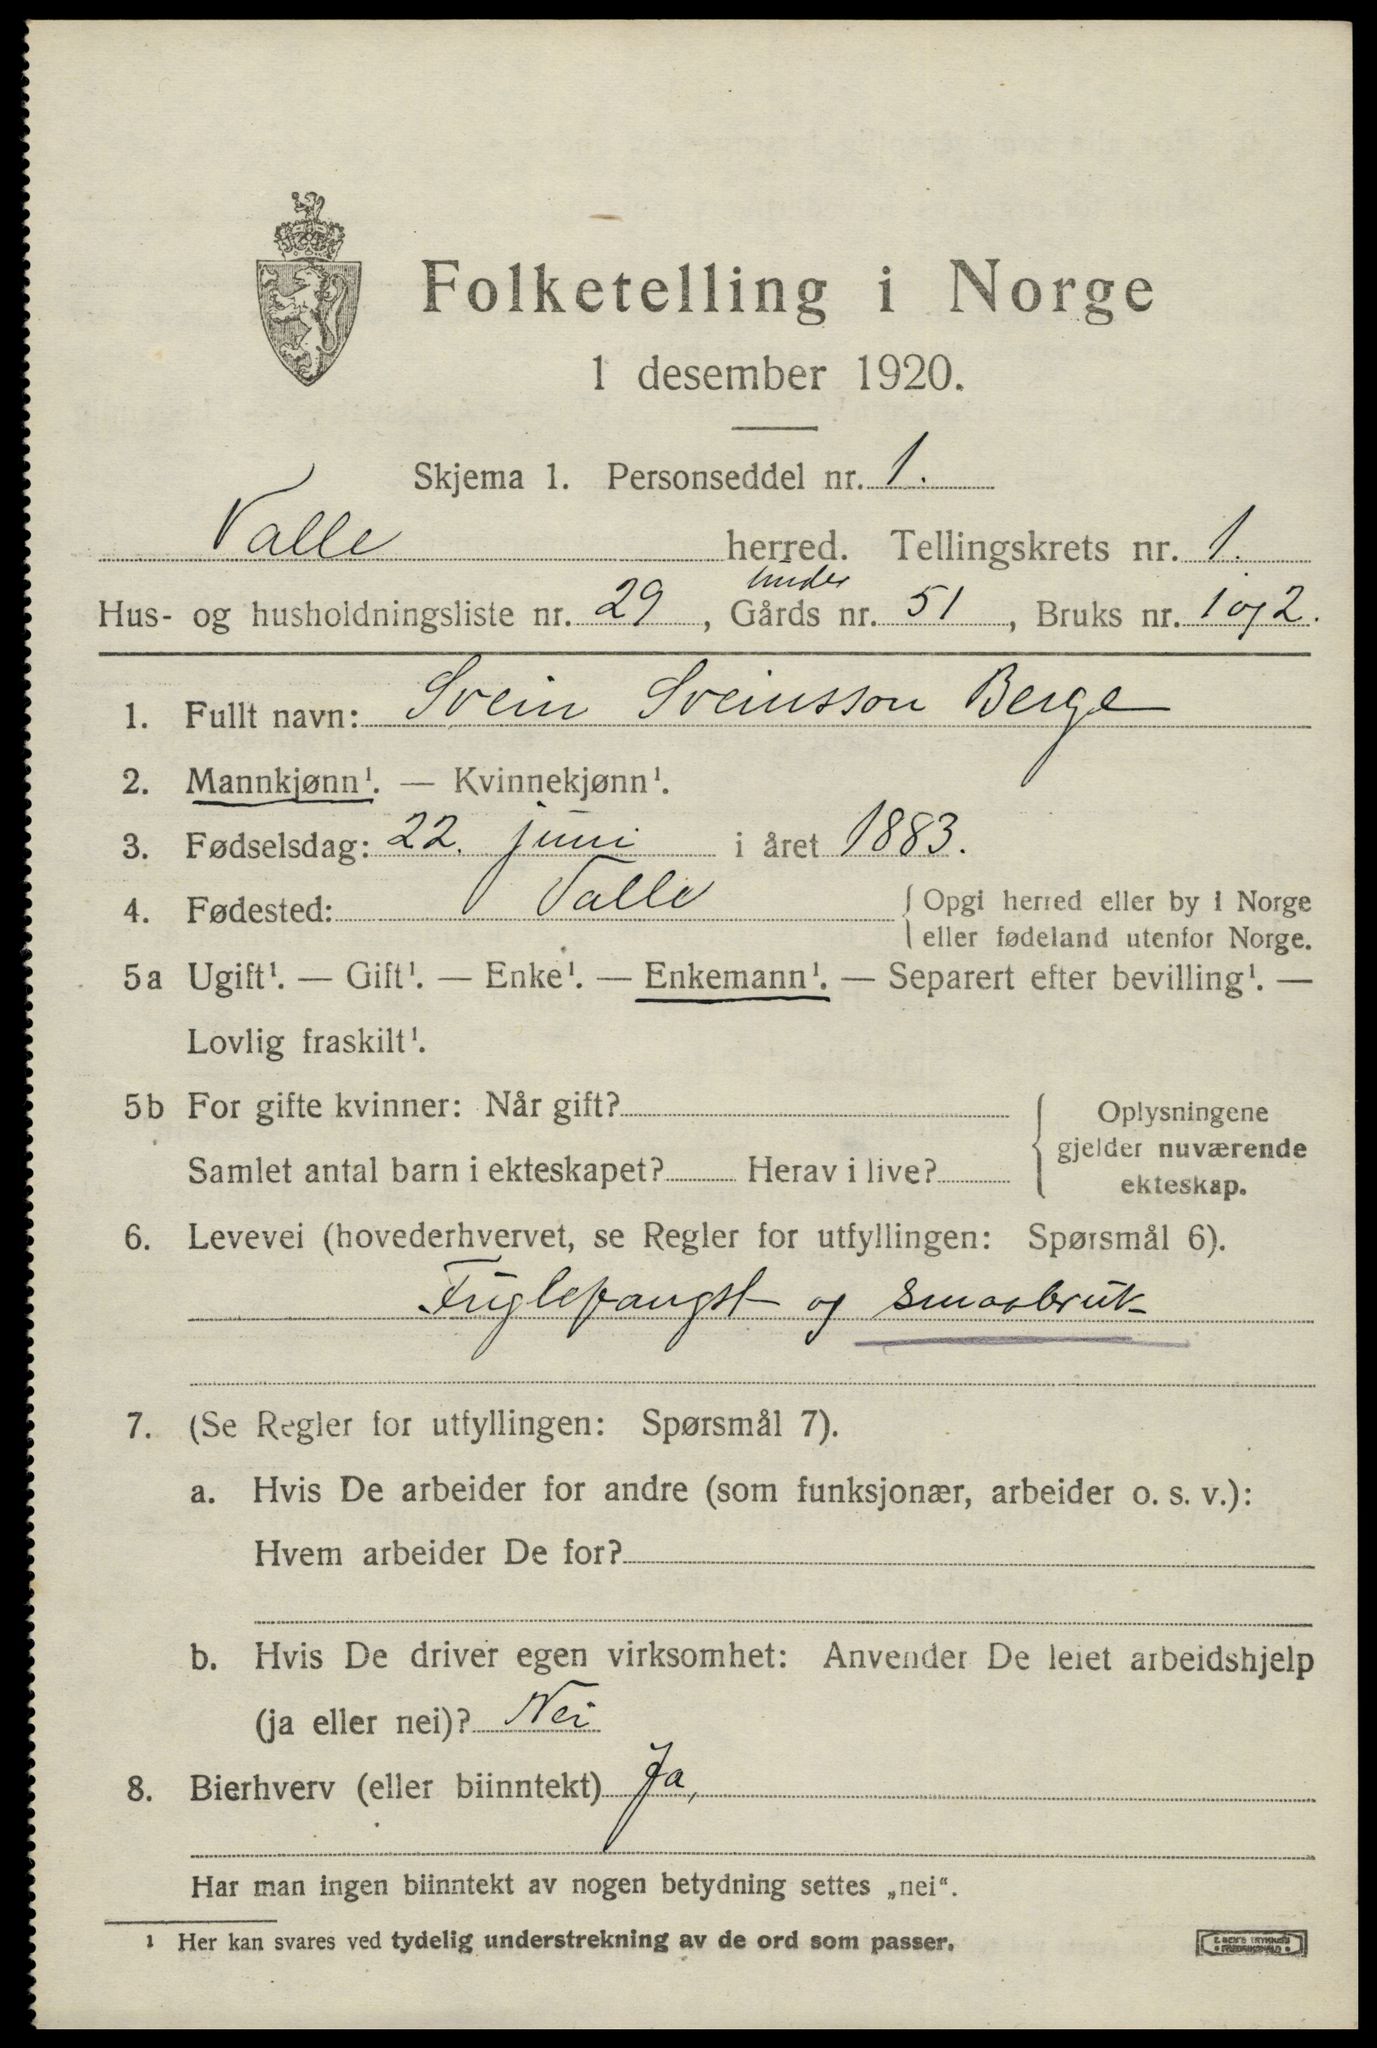 Folketelling i Norge
1 desember 1920.
Skjema 1. Personseddel nr. 1.
Valle herred. Tellingskrets nr. 1.
under
Hus- og husholdningsliste nr. 29, Gårds nr. 51, Bruks nr. 1 og 2.
1. Fullt navn: Svein Sveinsson Berge
2. Mannkjønn¹. — Kvinnekjønn¹.
3. Fødselsdag: 22. juni i året 1883.
4. Fødested: Valle { Opgi herred eller by i Norge
eller fødeland utenfor Norge.
5a Ugift¹. — Gift¹. — Enke¹. — Enkemann¹. — Separert efter bevilling¹. —
Lovlig fraskilt¹.
5b For gifte kvinner: Når gift?
Samlet antal barn i ekteskapet? Herav i live?
{ Oplysningene
gjelder nuværende
ekteskap.
6. Levevei (hovederhvervet, se Regler for utfyllingen: Spørsmål 6).
Fuglefangst og smaabruk
7. (Se Regler for utfyllingen: Spørsmål 7).
a. Hvis De arbeider for andre (som funksjonær, arbeider o. s. v.):
Hvem arbeider De for?
b. Hvis De driver egen virksomhet: Anvender De leiet arbeidshjelp
(ja eller nei)? Nei
8. Bierhverv (eller biinntekt) Ja,
Har man ingen biinntekt av nogen betydning settes „nei“.
¹ Her kan svares ved tydelig understrekning av de ord som passer.